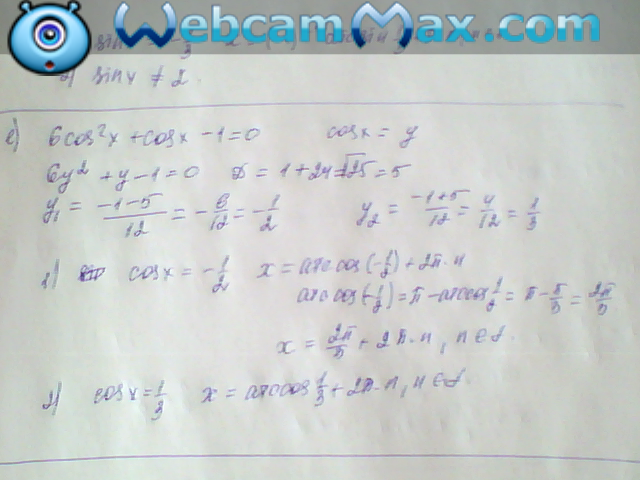 WebcamMax.com
2) sin x ≠ 2.
e) 6cos²x + cosx - 1 = 0 cosx = y
6y² + y - 1 = 0 D = 1 + 24 = √25 = 5
y₁ = (-1-5)/12 = -6/12 = -1/2 y₂ = (-1+5)/12 = 4/12 = 1/3
1) cosx = -1/2 x = arccos(-1/2) + 2π·n
arccos(-1/2) = π - arccos 1/2 = π - π/3 = 2π/3
x = 2π/3 + 2π·n, n ∈
2) cosx = 1/3 x = arccos 1/3 + 2π·n, n ∈